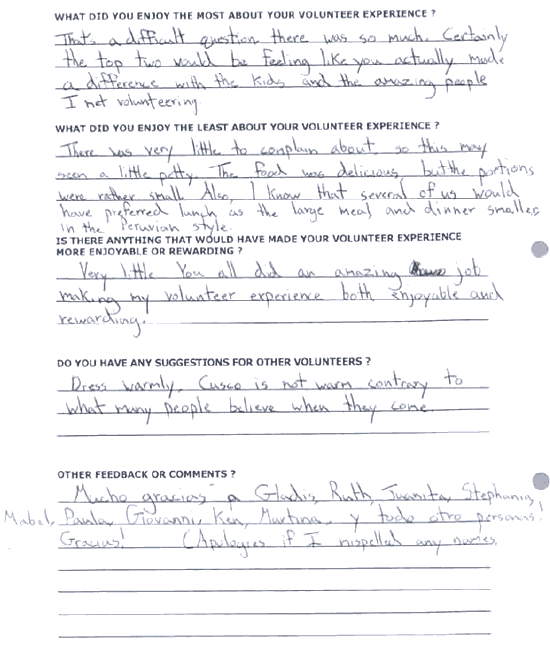 WHAT DID YOU ENJOY THE MOST ABOUT YOUR VOLUNTEER EXPERIENCE ?
That's a difficult question there was so much. Certainly
the top two would be feeling like you actually made
a difference with the kids and the amazing people
I met volunteering.
WHAT DID YOU ENJOY THE LEAST ABOUT YOUR VOLUNTEER EXPERIENCE ?
There was very little to complain about, so this may
seem a little petty. The food was delicious, but the portions
were rather small. Also, I know that several of us would
have preferred lunch as the large meal and dinner smaller
in the Peruvian style.
IS THERE ANYTHING THAT WOULD HAVE MADE YOUR VOLUNTEER EXPERIENCE
MORE ENJOYABLE OR REWARDING ?
Very little You all did an amazing job
making my volunteer experience both enjoyable and
rewarding.
DO YOU HAVE ANY SUGGESTIONS FOR OTHER VOLUNTEERS ?
Dress warmly. Cusco is not warm contrary to
what many people believe when they come.
OTHER FEEDBACK OR COMMENTS ?
Mucho gracias a Gladis, Ruth, Juanita, Stephania,
Mabel, Paula, Giovanni, Ken, Martina, y todo otro personas!
Gracias! (Apologies if I mispelled any names.